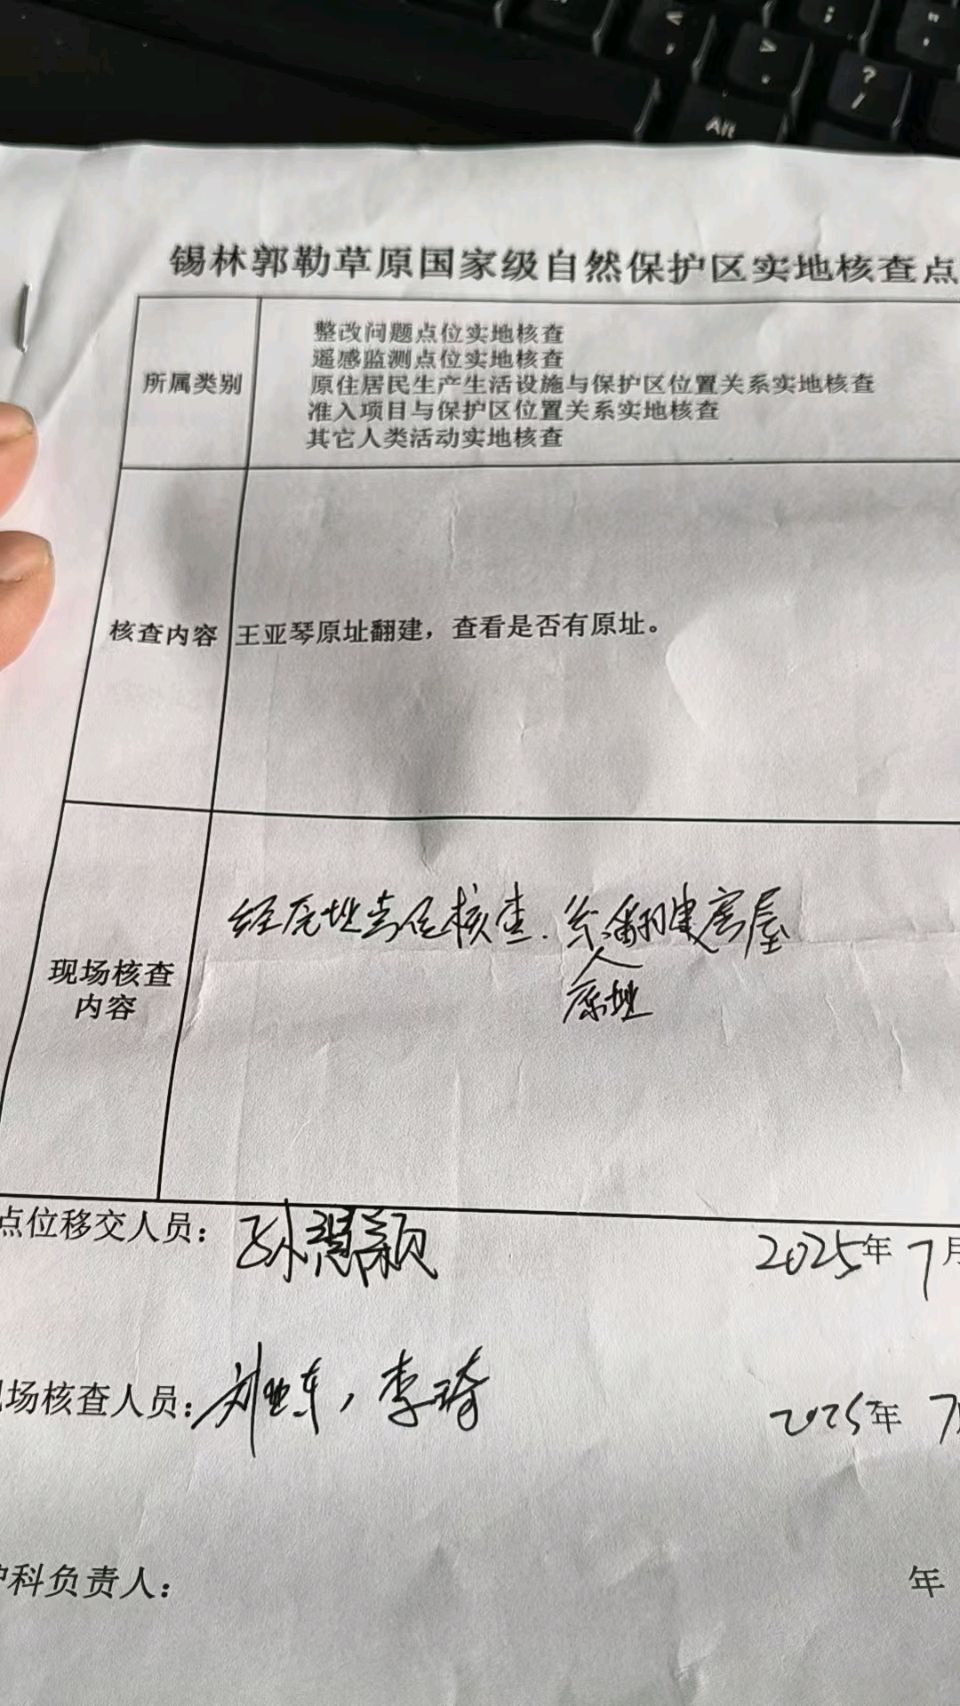 锡林郭勒草原国家级自然保护区实地核查点
所属类别
整改问题点位实地核查
遥感监测点位实地核查
原住居民生产生活设施与保护区位置关系实地核查
准入项目与保护区位置关系实地核查
其它人类活动实地核查
核查内容
王亚琴原址翻建，查看是否有原址。
现场核查
内容
核查.翻建房屋
原址
点位移交人员：
孙慧颖
2025年7月
场核查人员：
李琦
2025年7
科负责人：
年
Alt
?
/